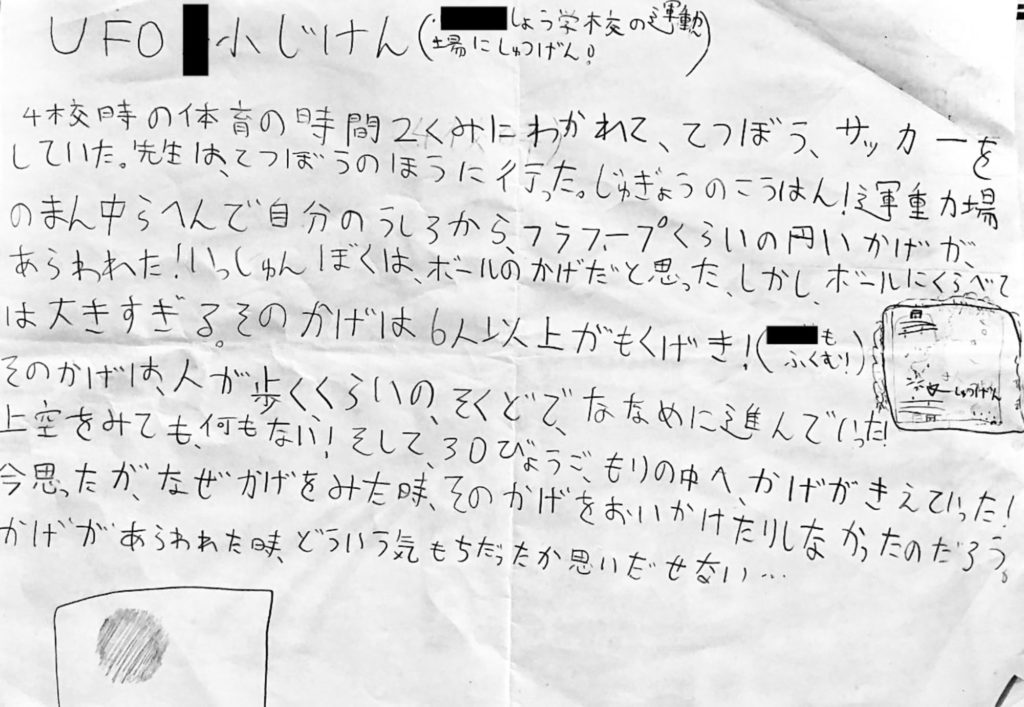 UFO 小じけん(しょう学校の運動
場にしゅつげん!)
4校時の体育の時間2くみにわかれて、てつぼう、サッカーを
していた。先生は、てつぼうのほうに行った。じゅぎょうのこうはん!運動場
のまん中らへんで自分のうしろから、フラフープくらいの円いかげが、
あらわれた!いっしゅんぼくは、ボールのかげだと思った、しかし、ボールにくらべて
は大きすぎる。そのかげは6人以上がもくげき!(も
ふくむ!)
そのかげは、人が歩くくらいの、そくどで、ななめに進んでいった!
上空をみても、何もない!そして、30びょうごもりの中へ、かげがきえていった!
今思ったが、なぜかげをみた時、そのかげをおいかけたりしなかったのだろう。
かげがあらわれた時、どういう気もちだったか思いだせない…
しゅつげん